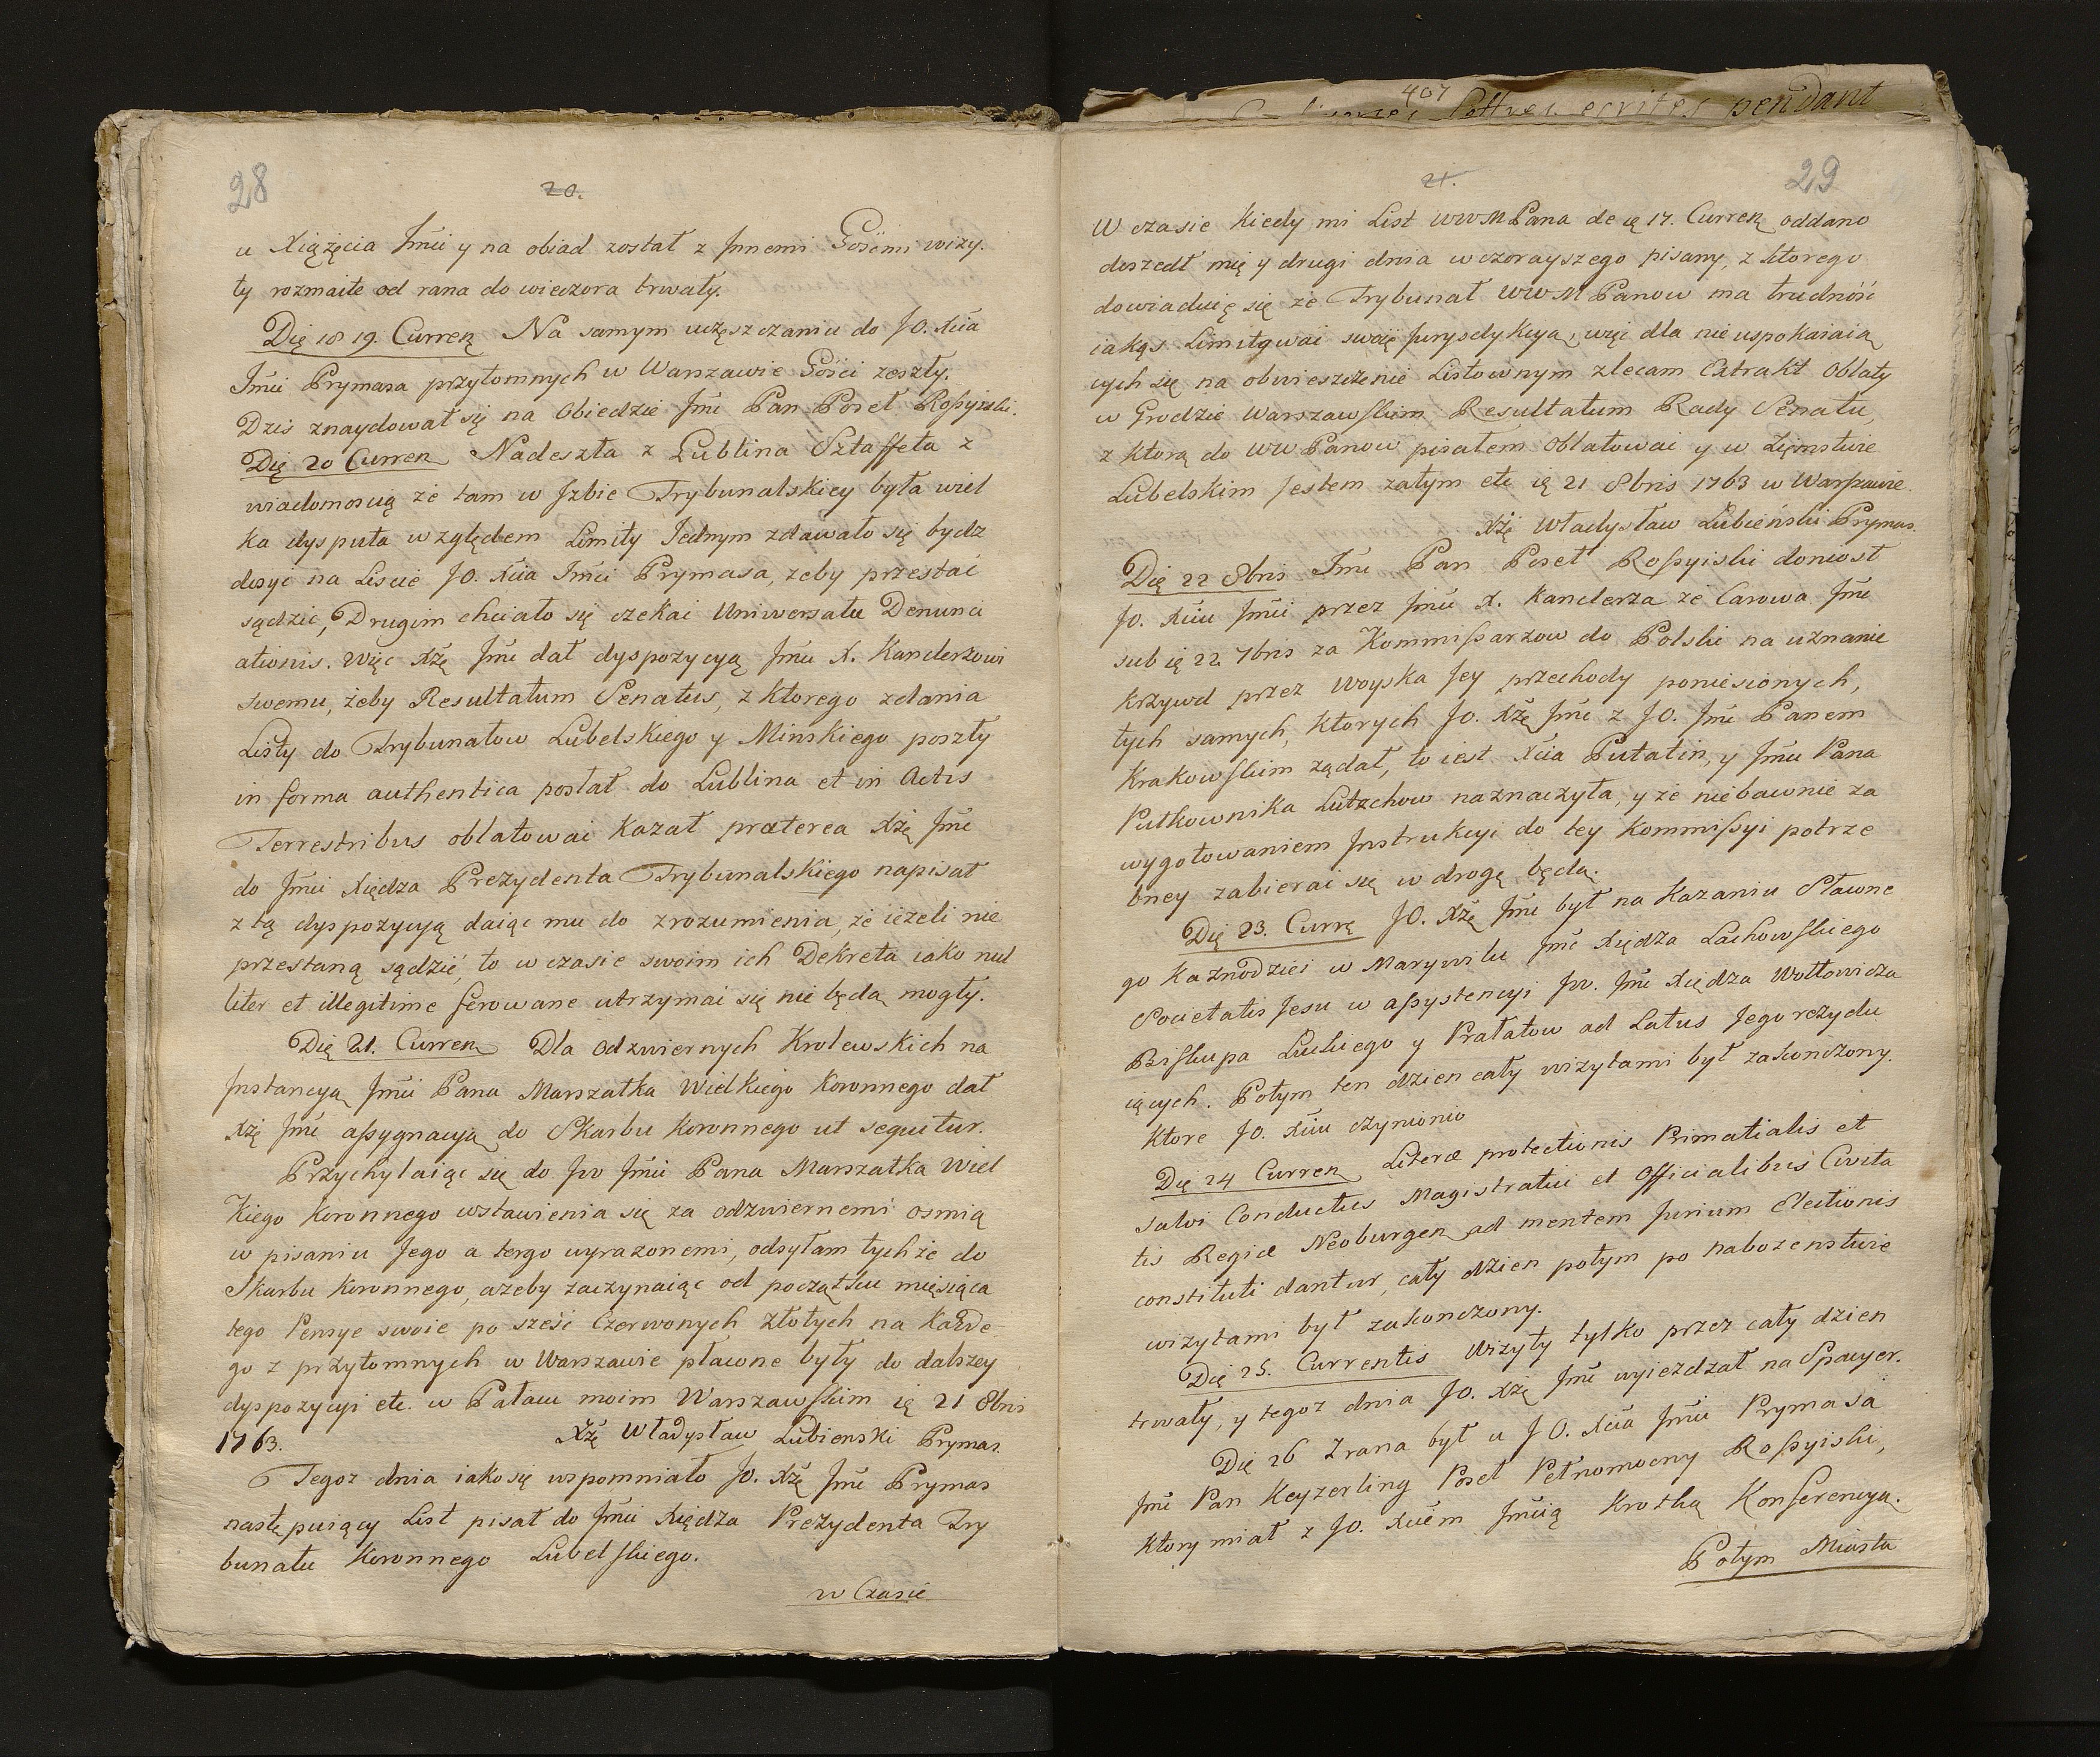 28
20.
u Xiążęcia Jmći y na obiad został z Jnnemi Gośćmi wizy.
ty rozmaite od rana do wieczora trwały.
Dię 18 19. Curren Na samym uczęszczaniu do JO. Xcia
Jmći Prymasa przytomnych w Warszawie Gości zeszły.
Dzis znaydował się na Obiedzie Jmć Pan Poseł Roſsyiski.
Dię 20 Curren Nadeszła z Lublina Sztaffeta z
wiadomoscią że tam w Jzbie Trybunalskiey była wiel
ka dysputa względem Limity Jednym zdawało się bydz
dosyć na Liscie JO. Xcia Jmći Prymasa, żeby przestać
sądzić, Drugim chciało się czekać Uniwersału Denunci
ationis. Więc Xżę Jmć dał dyspozycyą Jmću X. Kanclerzowi
swemu, żeby Resultatum Senatus, z ktorego zdania
Listy do Trybunałow Lubelskiego y Minskiego poszły
in forma authentica posłał do Lublina et in Actis
Terrestribus oblatować kazał præterea Xżę Jmć
do Jmći Xiędza Prezydenta Trybunalskiego napisał
z tą dyspozycyą daiąc mu do zrozumienia, że ieżeli nie
przestaną sądzić, to w czasie swoim ich Dekreta iako nul
liter et illegitime ferowane utrzymać się nie będą mogły.
Dię 21. Curren Dla Odzwiernych Krolewskich na
Jnstancyą Jmći Pana Marszałka Wielkiego Koronnego dał
Xżę Jmć aſsygnacyą do Skarbu Koronnego ut sequitur.
Przychylaiąc się do Jw Jmći Pana Marszałka Wiel
kiego Koronnego wstawienia się za odzwiernemi osmią
w pisaniu Jego a tergo wyrazonemi, odsyłam tychże do
Skarbu Koronnego, ażeby zaczynaiąc od początku miesiąca
tego Pensye swoie po sześć Czerwonych Złotych na każde
go z przytomnych w Warszawie płacone były do dalszey
dyspozycyi etc. w Pałacu moim Warszawſkim ię 21 8bris
1763. Xżę Władysław Łubienski Prymas.
Tegoz dnia iako się wspomniało Jo. Xżę Jmć Prymas
nastę puiący List pisał do Jmći Xiędza Prezydenta Try
bunału Koronnego Lubelſkiego.
w Czasie
407
Lettres ecrites pendant
29
21.
W czasie kiedy mi List WWM Pana de ię 17. Curren oddano
doszedł mię y drugi dnia wczorayszego pisany, z ktorego
dowiaduię się że Trybunał WWM Panow ma trudność
iakąs Limitować swoię Jurysdykcyą, więc dla nieuspokaiaią
cych się na obwieszczenie Listownym zlecam Extrakt Oblaty
w Grodzie Warszawſkim Resultatum Rady Senatu,
z ktorą do WW Panow pisałem Oblatować y w Ziemstwie
Lubelskim Jestem zatym etc ię 21 8bris 1763 w Warſzawie.
Xżę Władysław Łubieński Prymas.
Dię 22 8bris Jmć Pan Poseł Roſsyiski doniosł
Jo. Xciu Jmći przez Jmću X. Kanclerza że Carowa Jmć
sub ię 22 7bris za Kommiſsarzow do Polski na uznanie
krzywd przez Woyska Jey przechody poniesionych,
tych samych, ktorych Jo. Xżę Jmć z JO. Jmć Panem
Krakowſkim żądał, to iest Xcia Putatin, y Jmći Pana
Pułkownika Lutzchow naznaczyła, y że niebawnie za
wygotowaniem Jnstrukcyi do tey Kommiſsyi potrze
bney zabierać się w drogę będą.
Dię 23. Curre JO. Xżę Jmć był na Kazaniu Sławne
go Kaznodziei w Marywilu Jmć Xiędza Lachowſkiego
Societatis Jesu w aſsystencyi Jw. Jmć Xiędza Wołłowicza
Biſkupa Luckiego y Prałatow ad Latus Jego rezydu
iących. Potym ten dzien cały wizytami był zakonczony.
Ktore Jo. Xciu czyniono
Dię 24 Curren Literæ protectionis Primatialis et
salvi Conductus Magistratui et Officialibus Civita
tis Regiæ Neoburgen ad mentem Jurium Electionis
constituti dantur, cały dzien potym po nabozenstwie
wizytami był zakonczony.
Dię 25. Currentis Wizyty tylko przez cały dzien
trwały, y tegoz dnia Jo. Xżę Jmć wyiezdzał na Spacyer.
Dię 26 Zrana był u JO. Xcia Jmći Prymasa
Jmć Pan Keyzerling Poseł Pełnomocny Roſsyiski,
ktory miał z Jo. Xciem Jmcią Krotką Konferencyą.
Potym Miasta